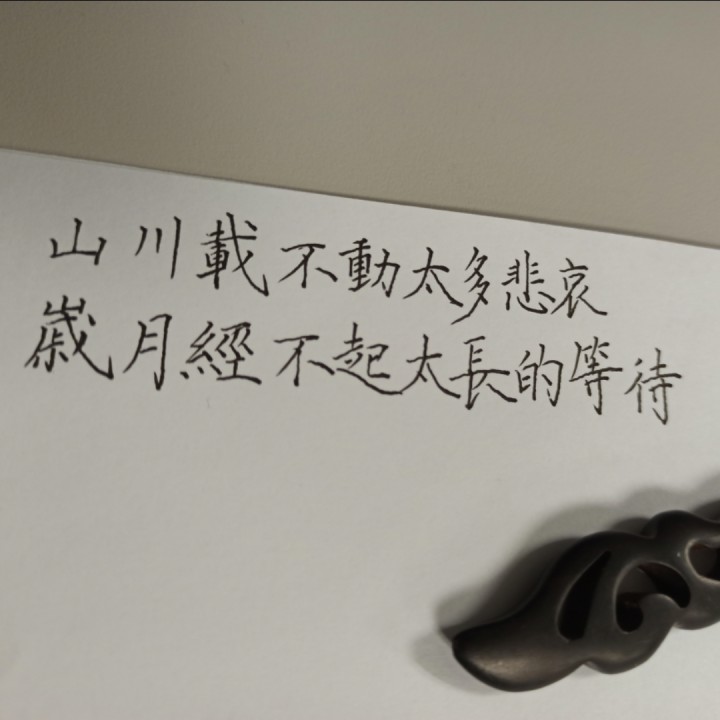 山川載不動太多悲哀
歲月經不起太長的等待